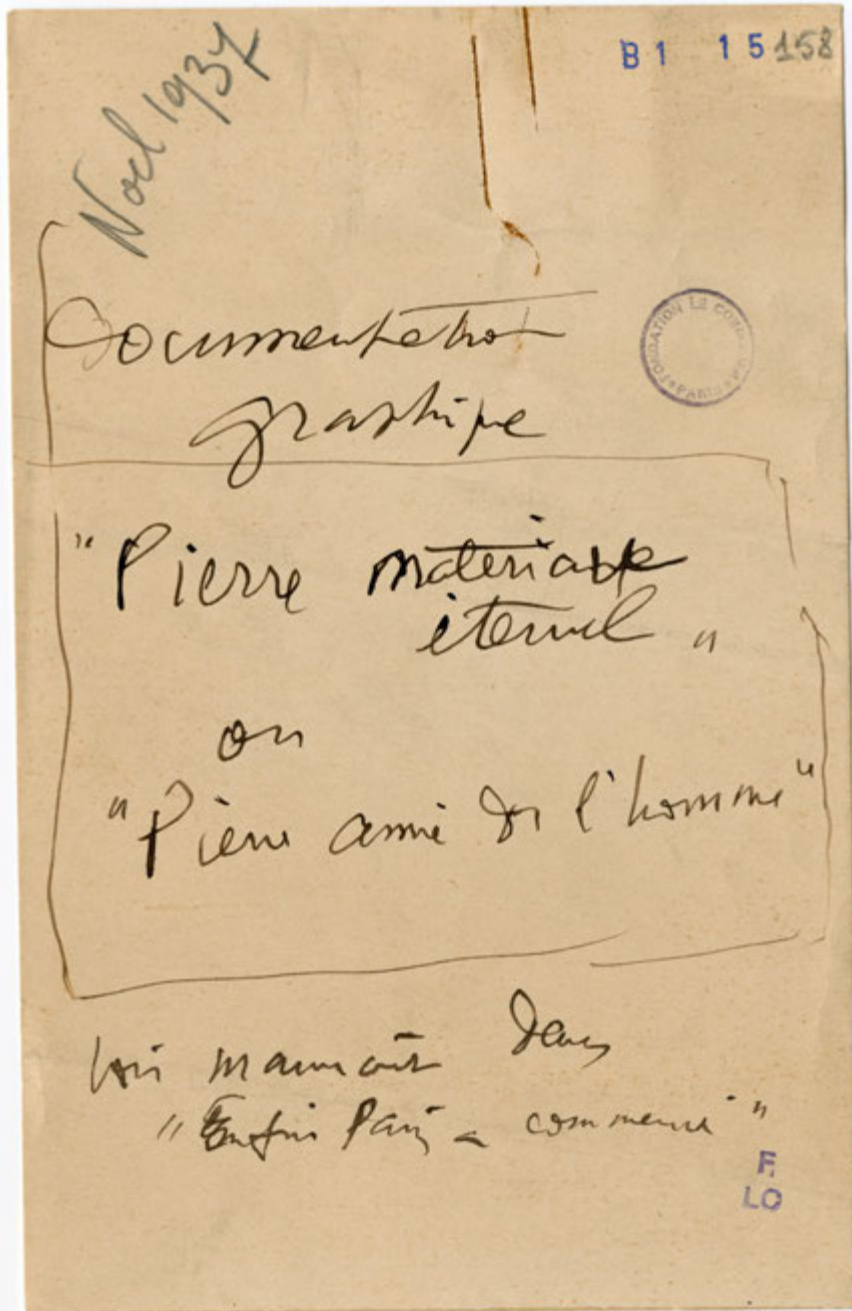 Noël 1937
B1 15 158
FONDATION LE CORBUSIER PARIS
Documentation
graphique
"Pierre matériau
éternel"
ou
"Pierre amie de l'homme"
Voir manuscrit dans
"Enfin Paris a commencé"
F.
LC